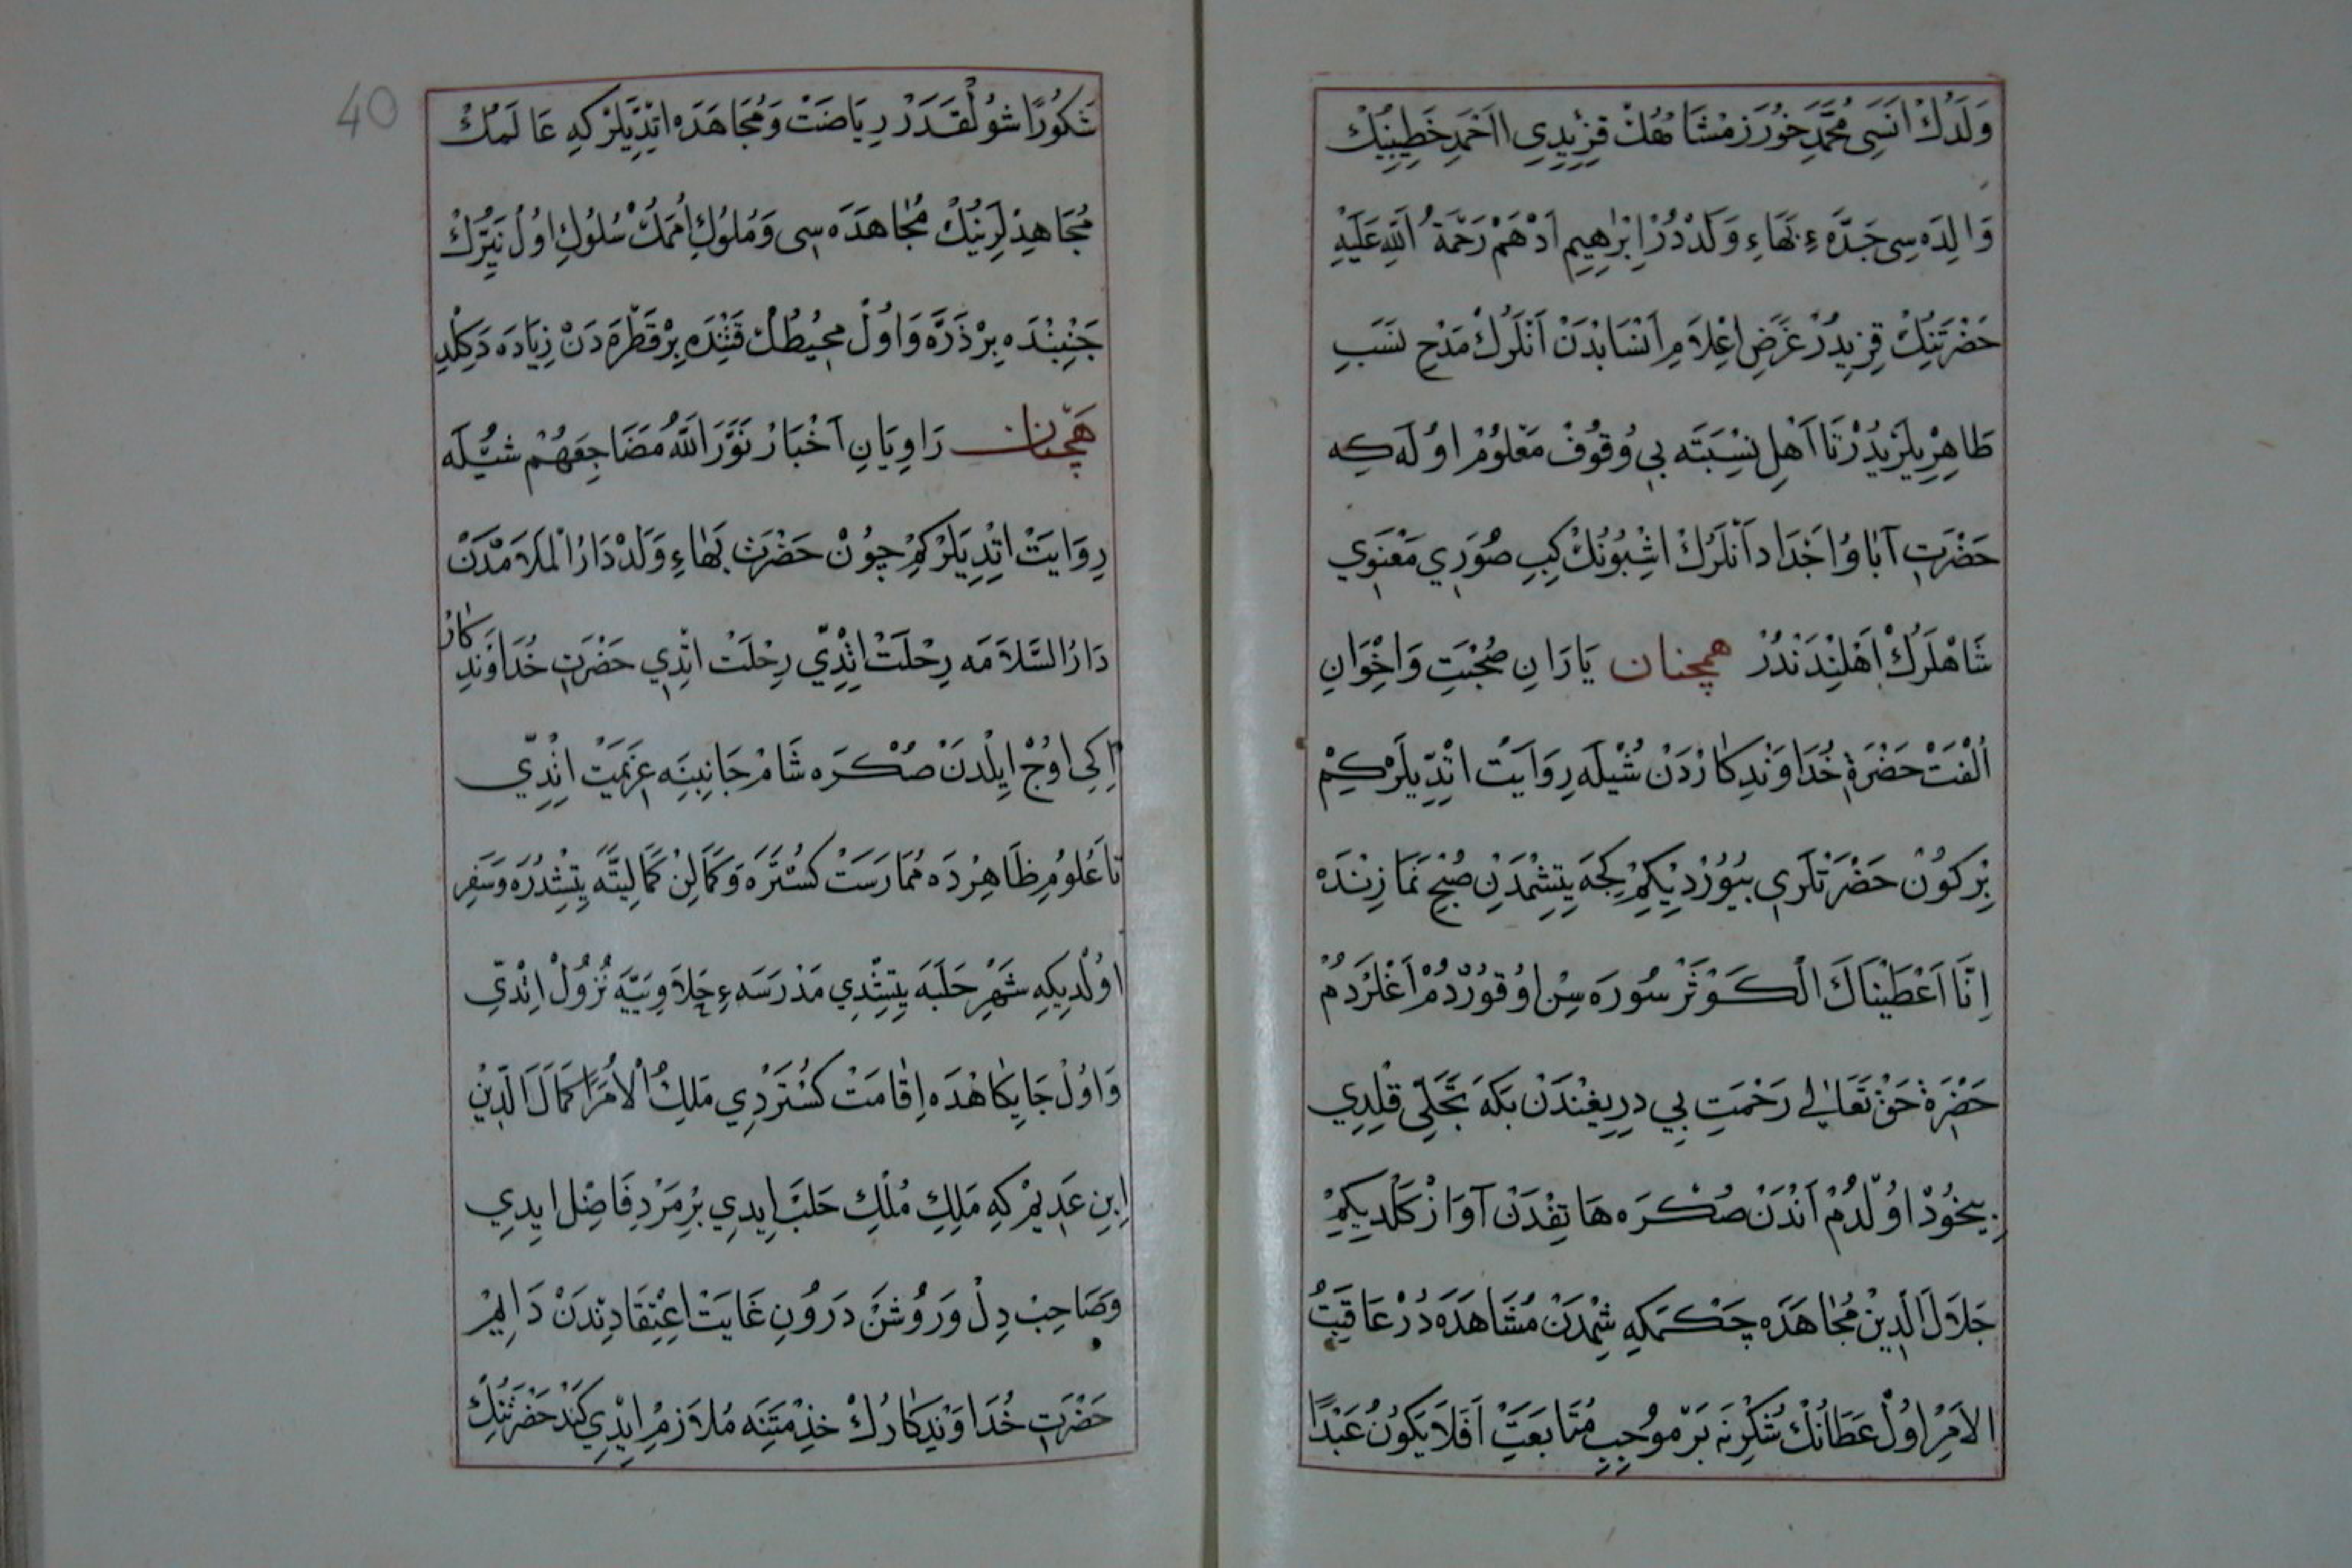 وَلَدُكْ اَنَسِى مُحَمَّدِ خُورَزمْشَاهُكْ قِزِيدِي اَحْمَدِ خَطِيبِيكْ
وَالِدَه سِى جَدَّهٔ بَهَاءِ وَلَدْدُرْ اِبْرٰهِيمِ اَدْهَمْ رَحْمَةُ اللّٰهِ عَلَيْهِ
حَضْرَتِنِكْ قِزِيدُرْ غَرَضِ اِعْلَامِ اَنْسَابْدَنْ اَنْلَرُكْ مَدْحِ نَسَبِ
طَاهِرِيلَرِيدُرْ تَا اَهْلِ نِسْبَتَه بِي وُقُوفْ مَعْلُومْ اوُلَه كِه
حَضْرَتِ آبَا وُاَجْدَادِ اَنْلَرُكْ اشْبُونُكْ كِبِ صُوَرِي مَعْنَوِي
شَاهْلَرُكْ اَهْلِنْدَنْدُرْ همچنان يَارَانِ صُحْبَتِ وَاِخْوَانِ
اُلْفَتْ حَضْرَةِ خُدَاوَنْدِكَارْدَنْ شُيْلَه رِوَايَتْ اتْدِيلَرْكِمْ
بِرْكُونْ حَضْرَتْلَرِي بيُوُرْدِيكِمْ كِجَه يِتِشْمَدِنْ صُبْحِ نَمَازِنْدَه
اِنَّا اَعْطَيْنَاكَ الْكَوْثَرْ سُورَه سِنِ اوُقُورْدُمْ اَغْلَرْدُمْ
حَضْرَةِ حَقْ تَعَالٰى رَحْمَتِ بِي دِرِيغِنْدَنْ بَكَه تَجَلِّى قِلْدِي
بِيخُودْ اوُلْدُمْ اَنْدَنْ صُكْرَه هَاتِفْدَنْ آوَازْ كَلْدِيكِمْ
جَلَالَ الدِّينْ مُجَاهَدَه چَكْمَكِه شِمْدَنْ مُشَاهَدَه دُرْ عَاقِبَتُ
الاَمْرِ اوُلْ عَطَانُكْ شُكْرِنَه بَرْ مُوجِبِ مُتَابَعَتِ اَفَلَا يَكُونُ عَبْدًا
شَكُورًا شوُلْقَدَرْ رِيَاضَتْ وَمُجَاهَدَه اتْدِيلَرْكِه عَالَمُكْ
مُجَاهِدْلَرِينُكْ مُجَاهَدَه سِى وَمُلُوكِ اُمَمُكْ سُلُوكِ اوُلْ نَيِّرُكْ
جَنْبِنْدَه بِرْ ذَرَّه وَاوُلْ مُحِيطُكْ قَتِنْدَه بِرْ قَطْرَه دَنْ زِيَادَه دَكِلْدِ
همچنان رَاوِيَانِ اَخْبَارْ نَوَّرَ اللّٰهُ مَضَاجِعَهُمْ شُيْلَه
رِوَايَتْ اتْدِيلَرْكِمْ چُونْ حَضْرَتِ بَهَاءِ وَلَدْ دَارُ الْمَلَامْدَنْ
دَارُ السَّلَامَه رِحْلَتْ اتْدِي رِحْلَتْ اتْدِي حَضْرَتِ خُدَاوَنْدِكَارْ
اِكِي اوُچْ اِيلْدَنْ صُكْرَه شَامْ جَانِبِنَه عَزِيمَتْ اتْدِي
تَا عُلُومِ ظَاهِرْدَه مُمَارَسَتْ كُسْتَرَه وَكَمَالِنْ كَمَالِيَّتَه يِتِشْدُرَه وَسَفَرِ
اوُلْدِيكِه شَهْرِ حَلَبَه يِتِشْدِي مَدْرَسَهٔ حَلَاوِيَيَّه نُزُولْ اتْدِي
وَاوُلْ جَايِكَاهْدَه اِقَامَتْ كُسْتَرْدِي مَلِكُ الْاُمَرَا كَمَالَ الدِّينْ
اِبنِ عَدِيمْ كِه مَلِكِ مُلْكِ حَلَبْ اِيدِي بِرْ مَرْدِ فَاضِلْ ايدِي
وَصَاحِبْ دِلْ وَرُوشَنْ دَرُونِ غَايَتْ اِعْتِقَادِنْدَنْ دَايِمْ
حَضْرَتِ خُدَاوَنْدِكَارُكْ خِذْمَتِنَه مُلَازِمْ ايدِي كَنْد حَضْرَتِنُكْ
40